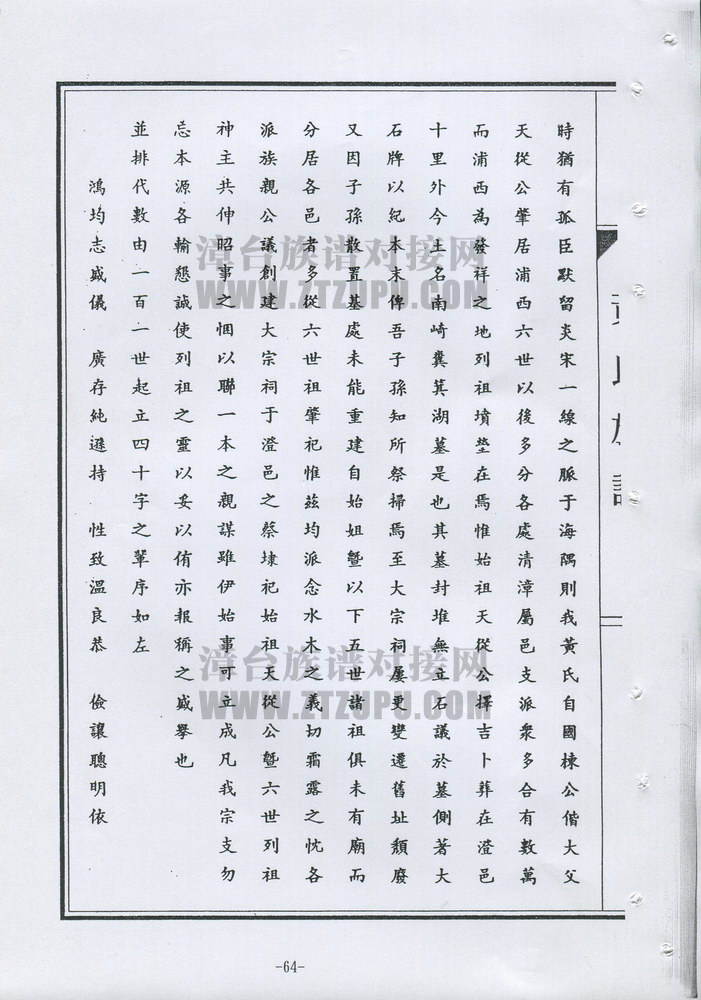 時猶有孤臣默留炎宋一線之脈于海隅則我黃氏自國棟公偕大父
天從公肇居浦西六世以後多分各處清漳屬邑支派衆多合有數萬
而浦西為發祥之地列祖墳塋在焉惟始祖天從公擇吉卜葬在澄邑
十里外今土名南崎糞箕湖墓是也其墓封堆無立石議於墓側著大
石牌以紀本末俾吾子孫知所祭掃焉至大宗祠屢更變遷舊址頹廢
又因子孫散置基處未能重建自始姐暨以下五世諸祖俱未有廟而
分居各邑者多從六世祖肇祀惟茲均派念水木之義切霜露之忱各
派族親公議創建大宗祠于澄邑之蔡埭祀始祖天從公暨六世列祖
神主共伸昭事之悃以聯一本之親謀雖伊始事可立成凡我宗支勿
忘本源各輸懇誠使列祖之靈以妥以侑亦報稱之盛舉也
並排代數由一百一世起立四十字之輩序如左
鴻均志盛儀 廣存純遜持 性致溫良恭 儉讓聰明依
-64-
漳台族谱对接网
WWW.ZTZUPU.COM
漳台族谱对接网
WWW.ZTZUPU.COM